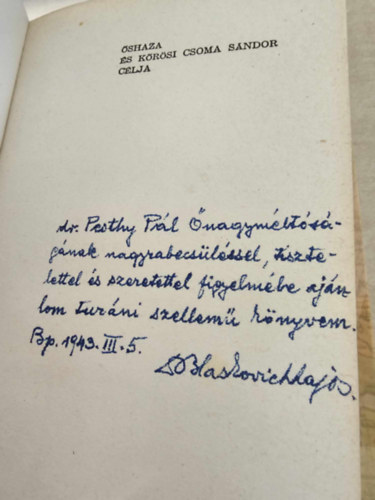 ŐSHAZA
ÉS KŐRÖSI CSOMA SÁNDOR
CÉLJA
dr. Pesthy Pál Őnagyméltósá-
gának nagyrabecsüléssel, tiszte-
lettel és szeretettel figyelmébe aján-
lom turáni szellemű könyvem.
Bp. 1943. III. 5.
Blaskovich Lajos.